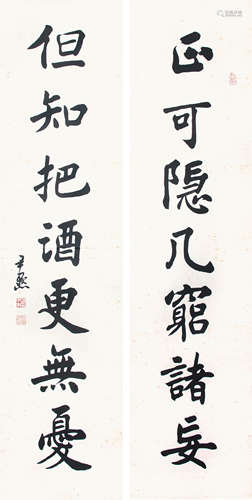 正可隐几窮諸妄
但知把酒更無憂
尹默